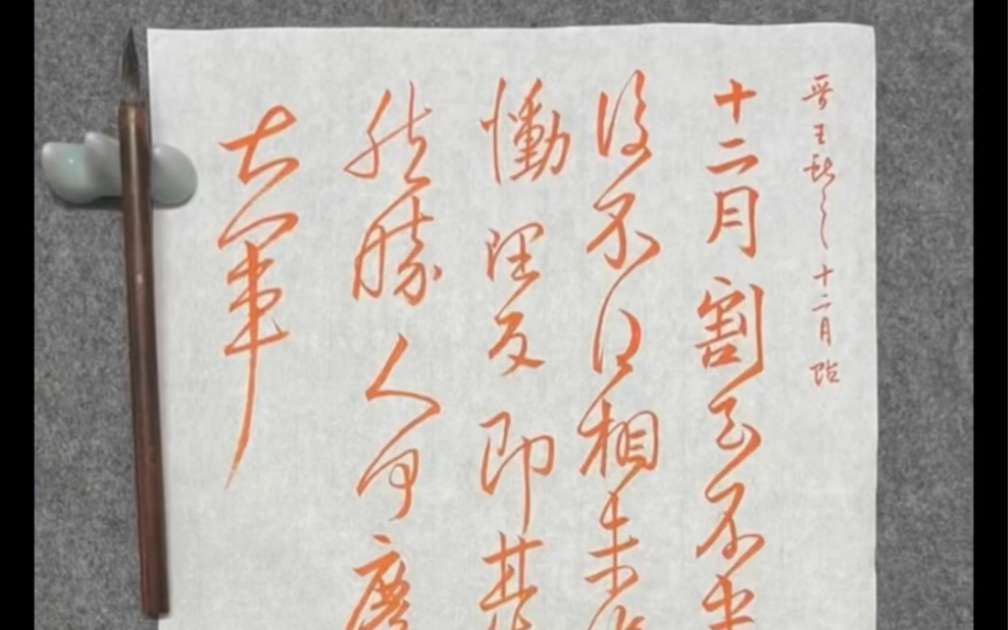 晋王献之十二月
十二月割至不
復不得相未
慟理為即甚
然勝人何慶
大軍